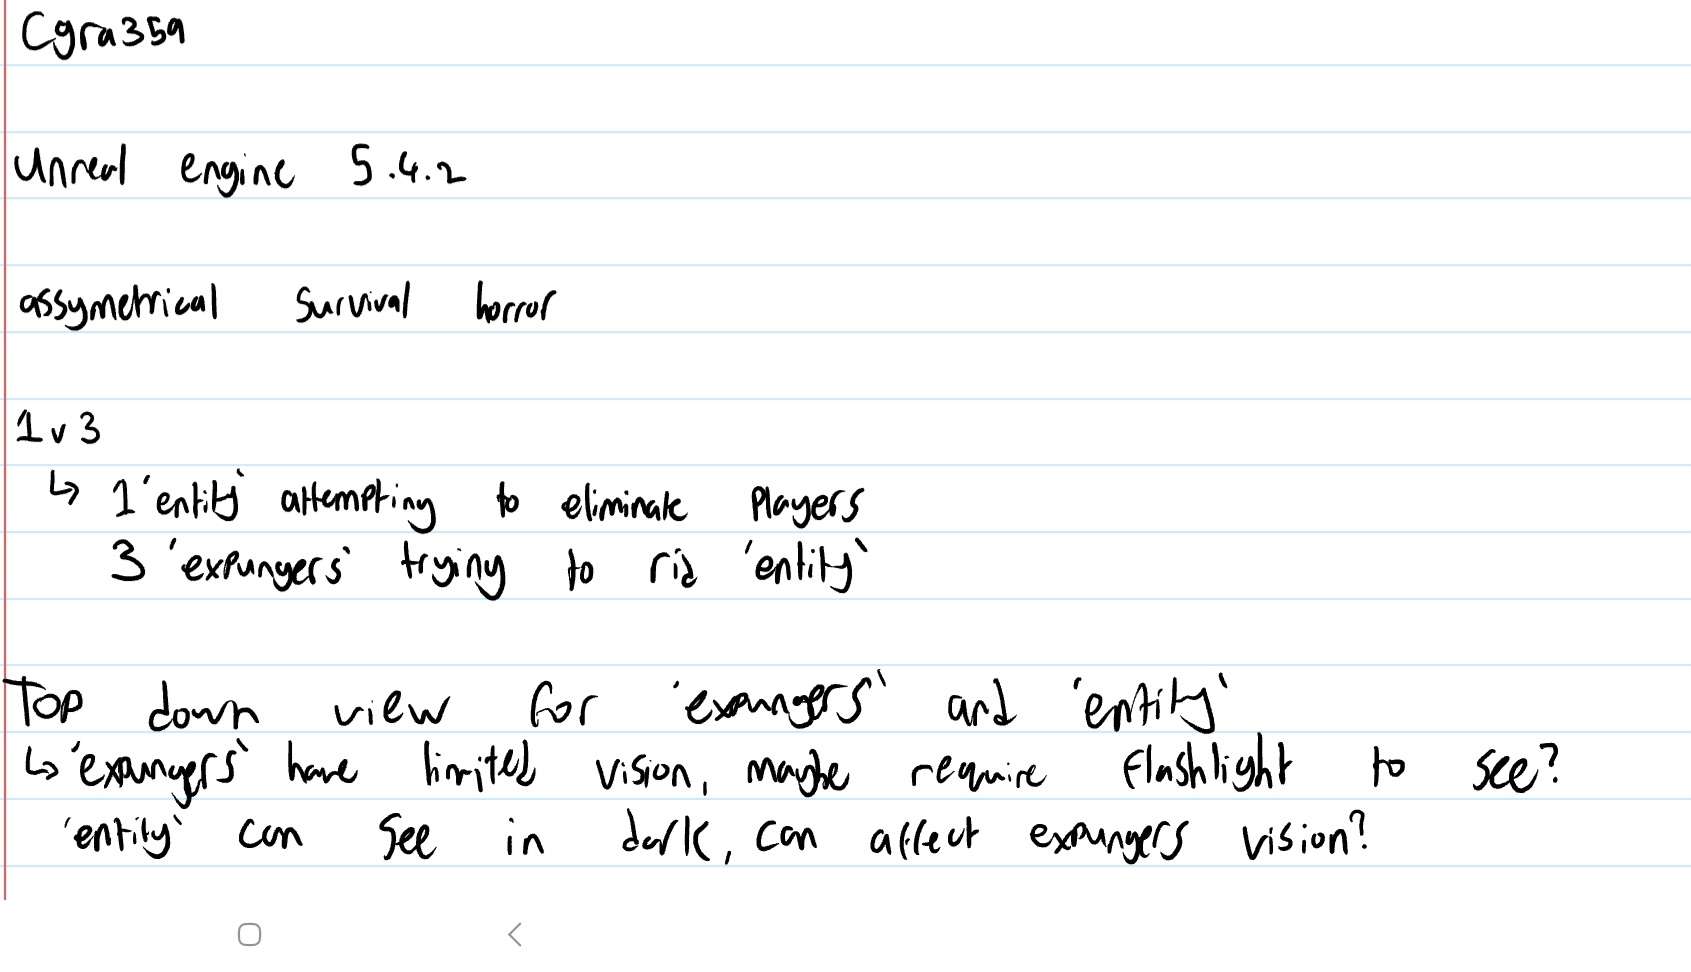 Cgra359
Unreal engine 5.4.2
assymetrical survival horror
1v3
↳ 1 'entity` attempting to eliminate players
3 'expungers` trying to rid 'entity`
Top down view for 'expungers` and 'entity`
↳ 'expungers` have limited vision, maybe require flashlight to see?
'entity` can see in dark, can affect expungers vision?